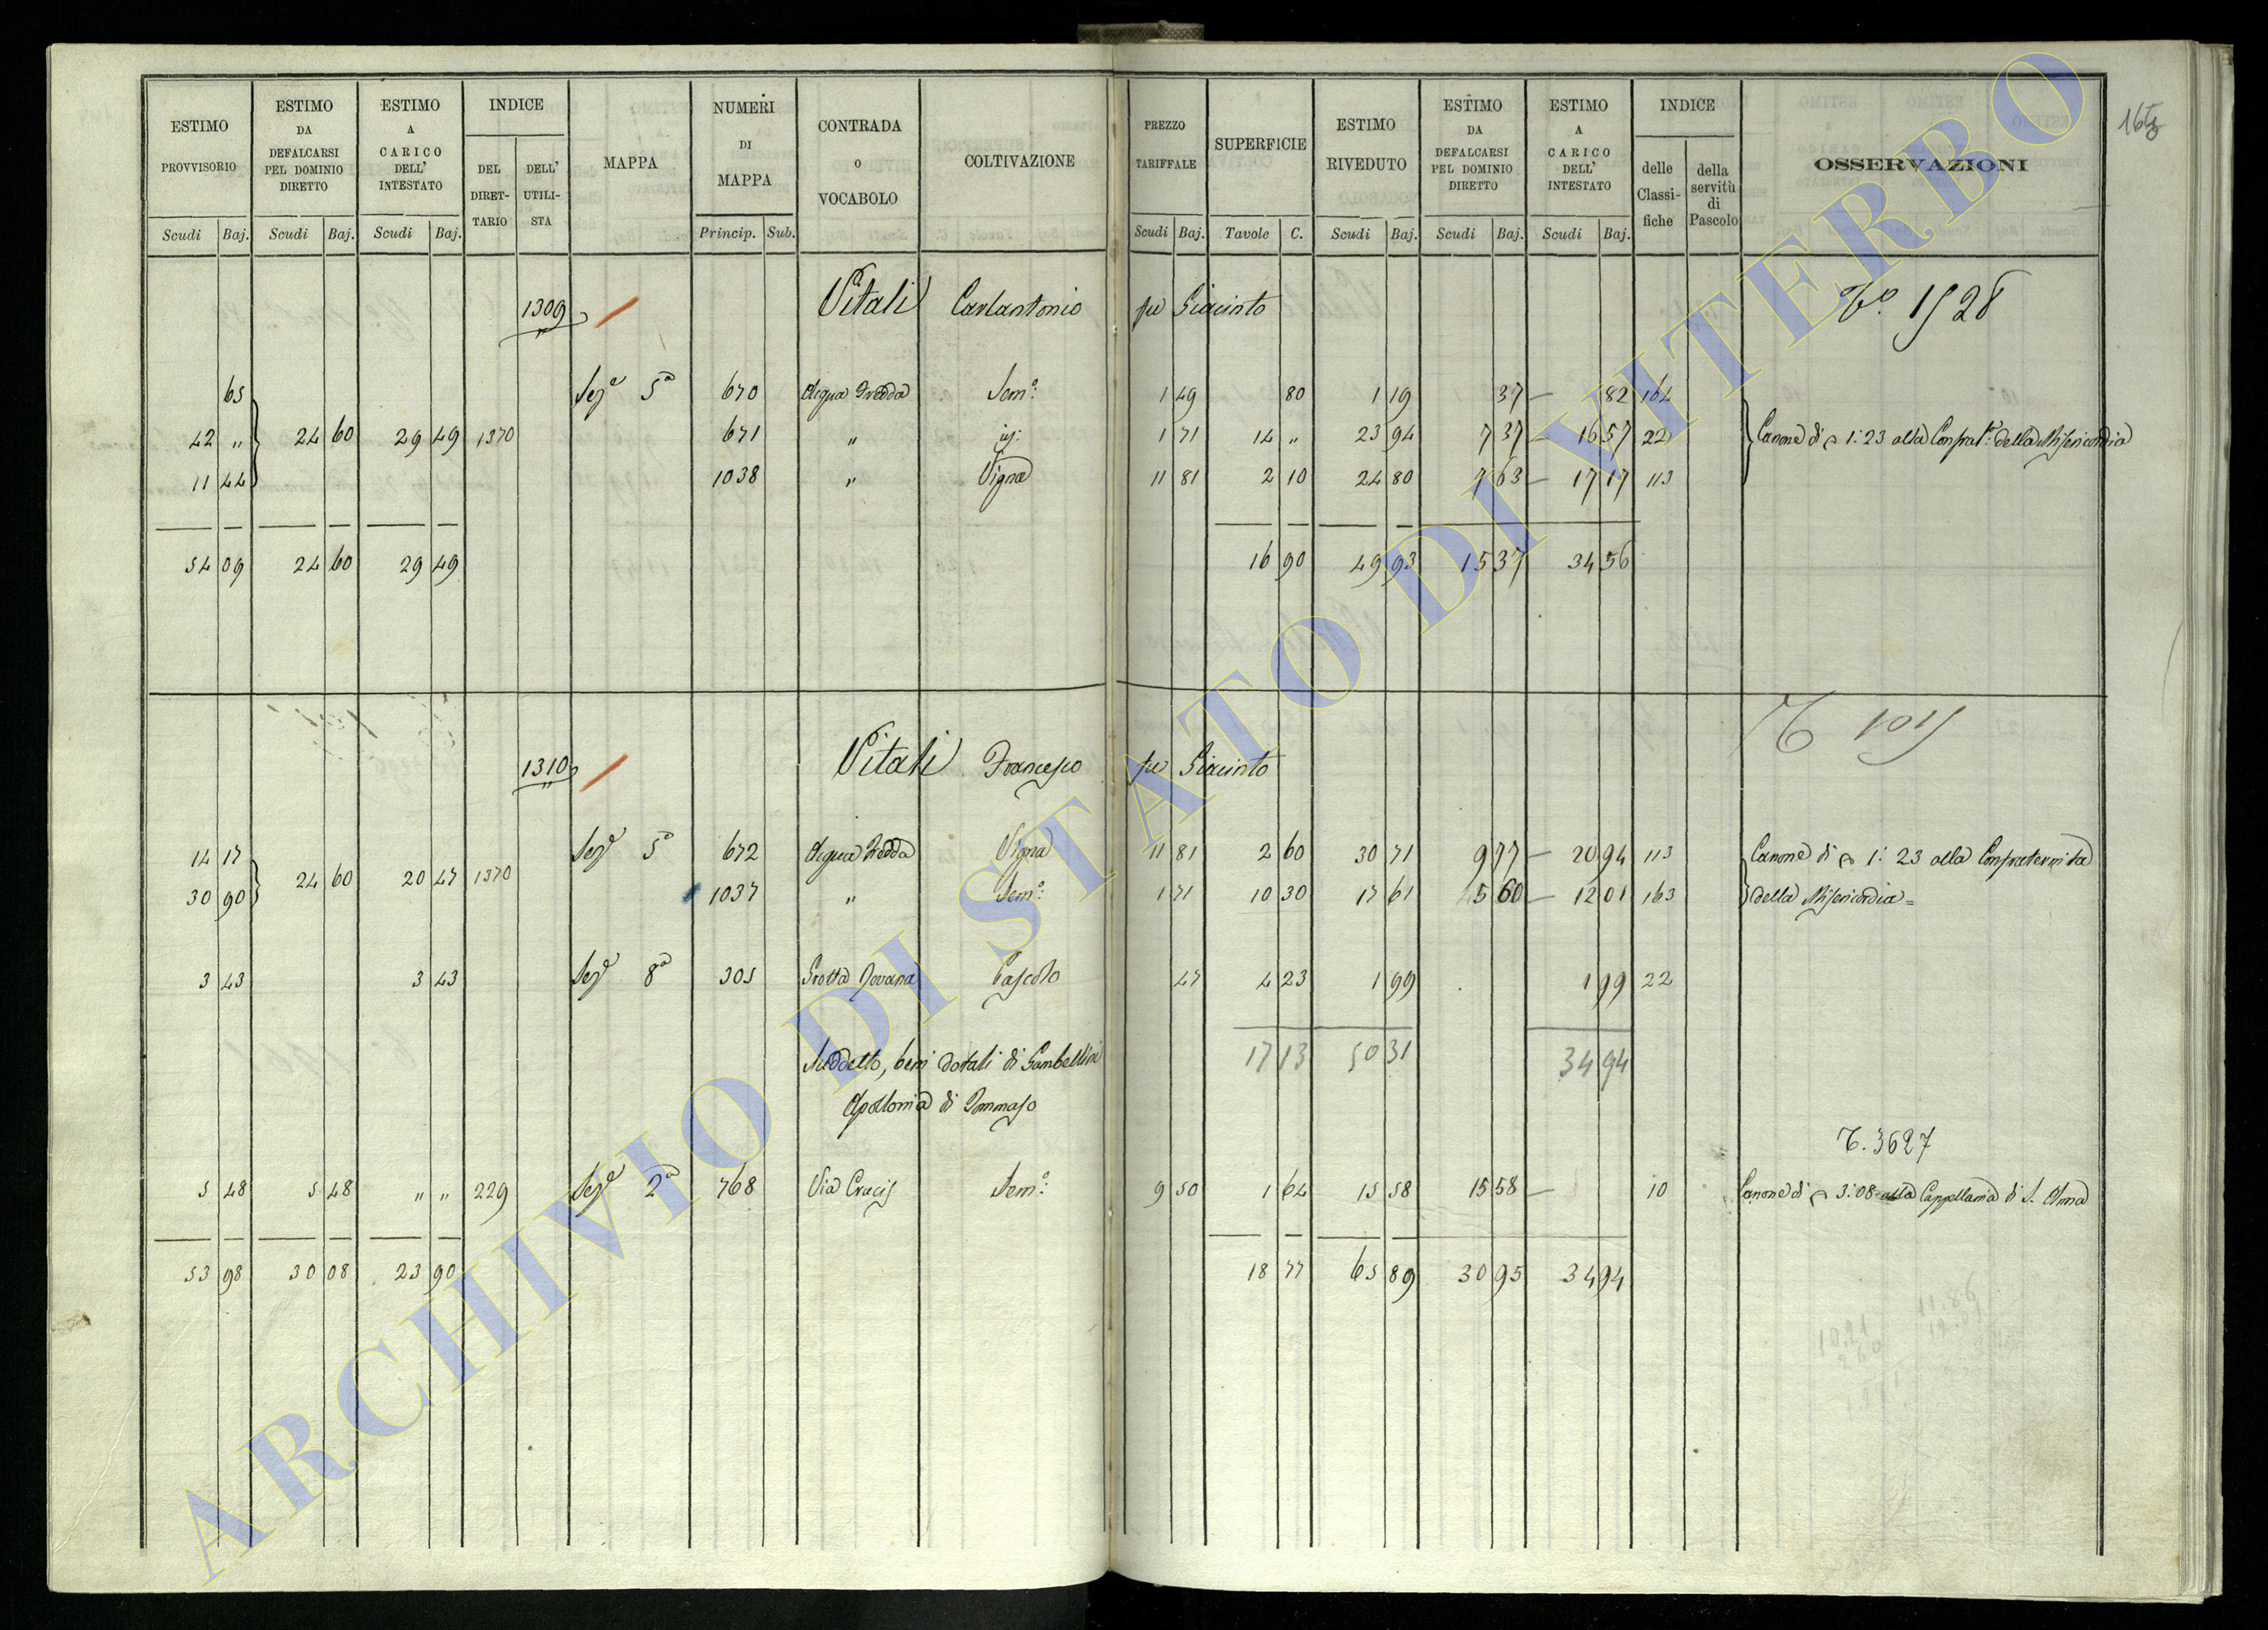 ESTIMO PROVVISORIO Scudi Baj.
ESTIMO DA DEFALCARSI PEL DOMINIO DIRETTO Scudi Baj.
ESTIMO A CARICO DELL' INTESTATO Scudi Baj.
INDICE DEL DIRET- TARIO DELL' UTILI- STA
MAPPA
NUMERI DI MAPPA Princip. Sub.
CONTRADA O VOCABOLO
COLTIVAZIONE
PREZZO TARIFFALE Scudi Baj.
SUPERFICIE Tavole C.
ESTIMO RIVEDUTO Scudi Baj.
ESTIMO DA DEFALCARSI PEL DOMINIO DIRETTO Scudi Baj.
ESTIMO A CARICO DELL' INTESTATO Scudi Baj.
INDICE delle Classi- fiche della servitù di Pascolo
OSSERVAZIONI
1309 Vitali Carlantonio fu Giacinto 1528
65 Seze 5a 670 Acqua Fredda Semo 1 49 80 1 19 37 — 82 164
42 „ 24 60 29 49 1370 671 „ id: 1 71 14 „ 23 94 7 37 — 16 57 221 Canone di 1:23 alla Confrat: della Misericordia
11 44 1038 „ Vigna 11 81 2 10 24 80 7 63 — 17 17 113
54 09 24 60 29 49 16 90 49 93 15 37 34 56
T 1015
1310 Vitali Francesco fu Giacinto
14 17 Seze 5a 672 Acqua Fredda Vigna 11 81 2 60 30 71 9 77 — 20 94 113 Canone di 1:23 alla Confraternita
24 60 20 47 1370
30 90 1037 „ Semo 1 71 10 30 17 61 5 60 — 12 01 163 della Misericordia =
3 43 3 43 Seze 8a 305 Grotta Pascolo 47 4 23 1 99 1 99 22
Suddetto, beni dotali di Gambellini 17 13 50 31 34 94
Apollonia di Tommaso
T. 3627
5 48 5 48 „ „ 229 Seze 2a 768 Via Crucis Semo 9 50 1 64 15 58 15 58 — 10 Canone di 3:08 alla Cappellania di S. Anna
53 98 30 08 23 90 18 77 65 89 30 95 34 94
ARCHIVIO DI STATO DI VITERBO